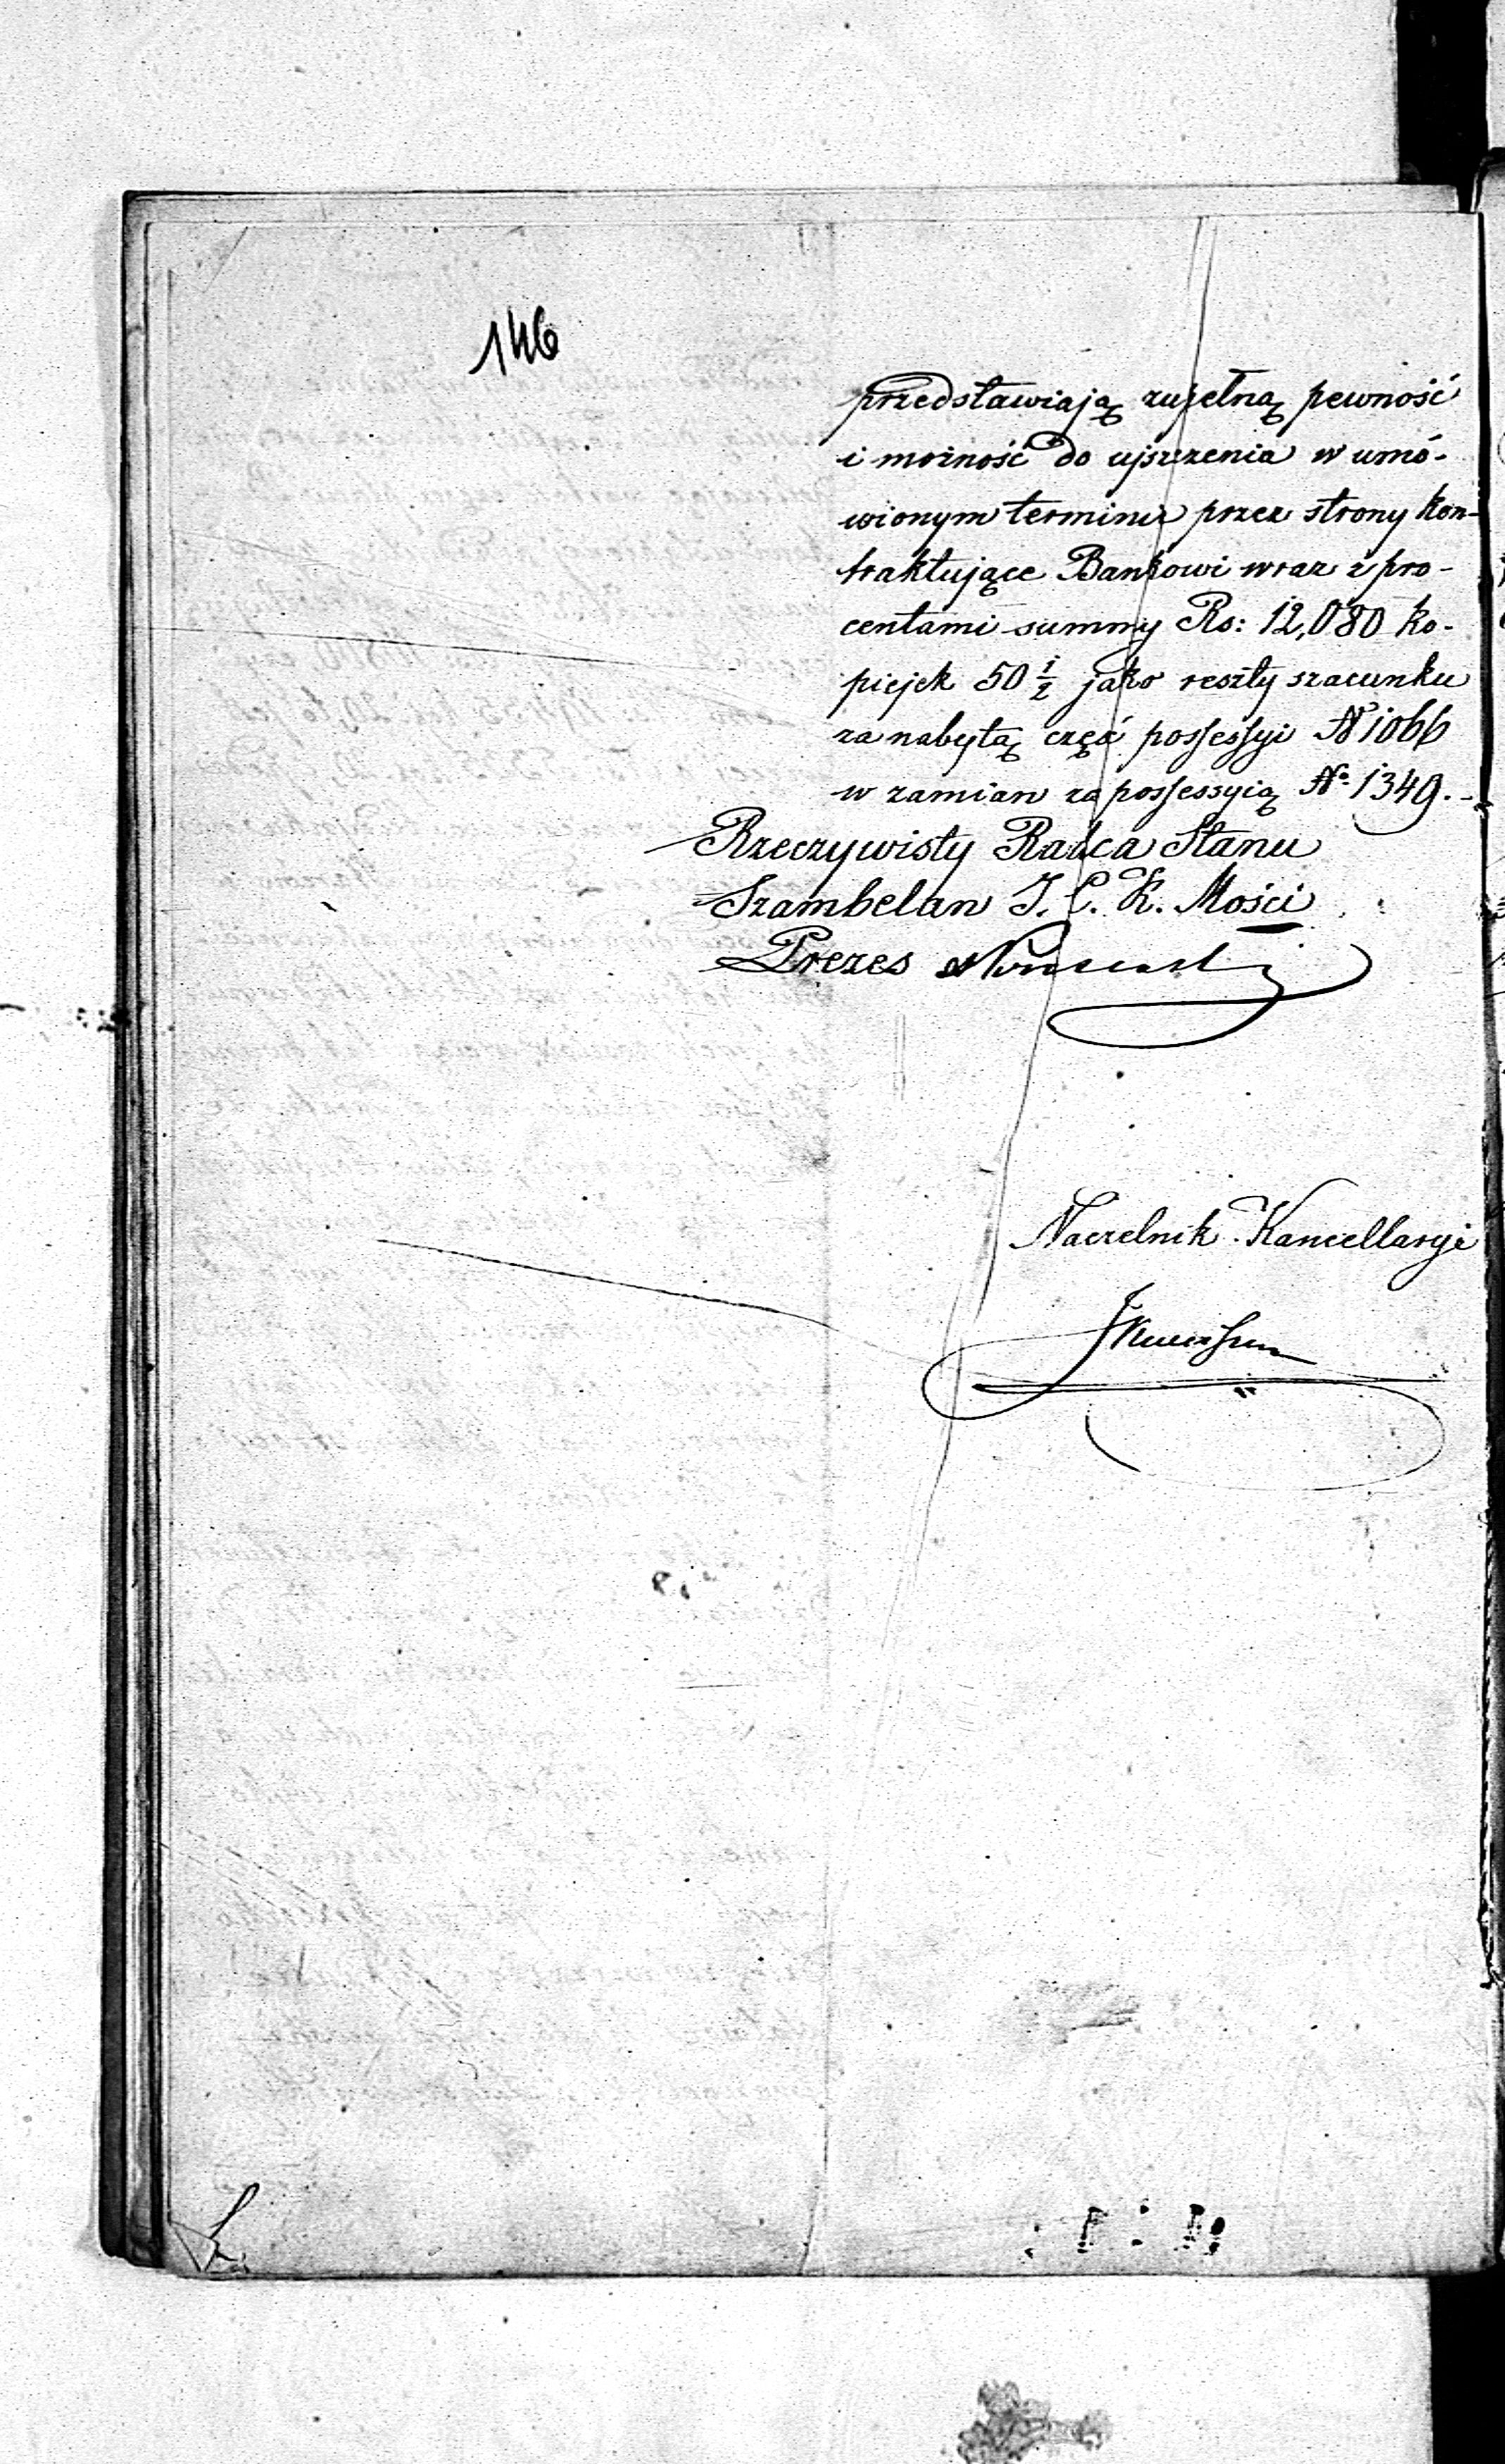 146
przedstawiają zupełną pewność
i możność do ujszczenia w umó-
wionym terminie przez strony kon-
traktujące Bankowi wraz z pro-
centami summy Rs: 12,080 ko-
piejek 50 1/2 jako reszty szacunku
za nabytą część possessyi N 1066
w zamian za possessyią No 1349.-
Rzeczywisty Radca Stanu
Szambelan J. C. K. Mości
Prezes
Naczelnik Kancellaryi